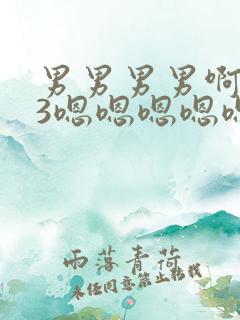 男男男男啊
3嗯嗯嗯嗯
雨落青荷
未经同意禁止转载